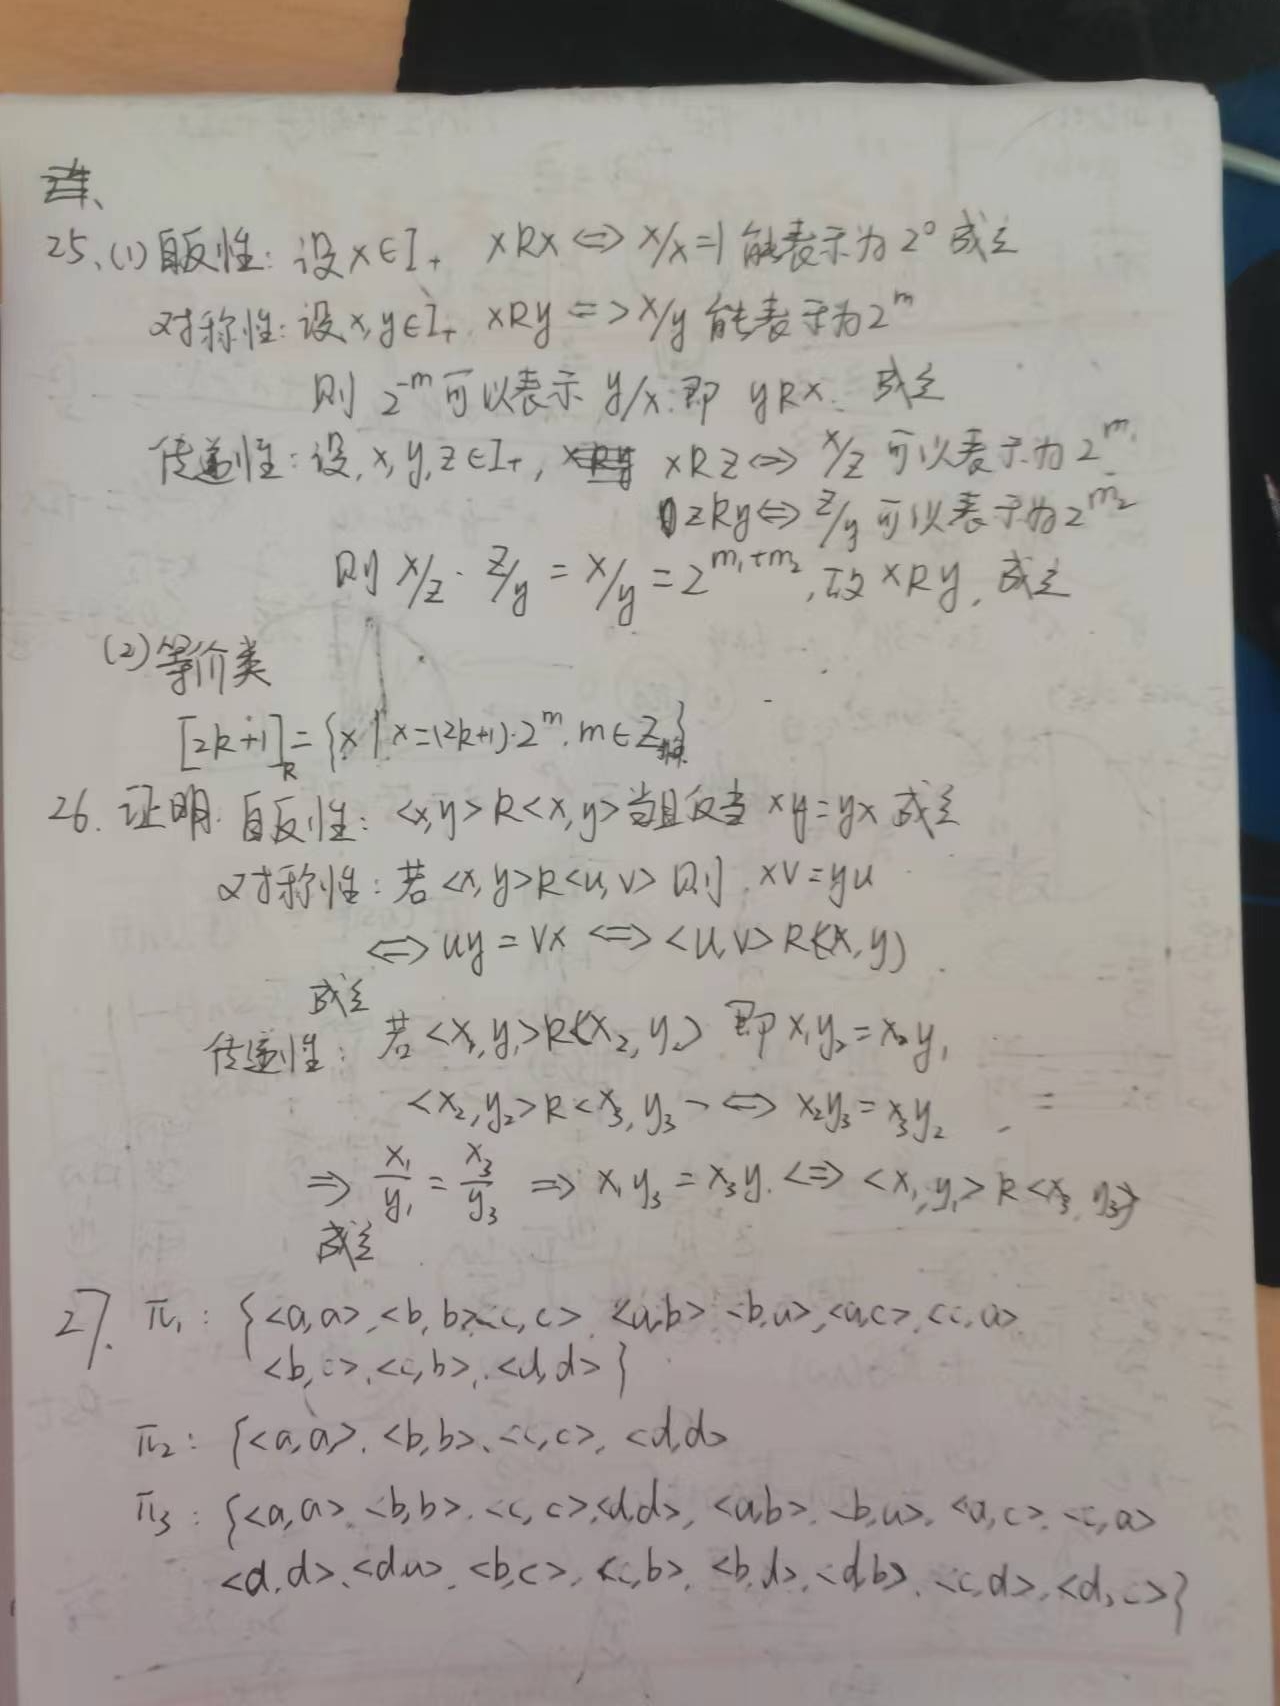 25、(1) 自反性: 设x∈I₊ xRx⇔x/x=1 能表示为2⁰成立
对称性: 设x,y∈I₊ xRy=>x/y 能表示为2^m
则 2^{-m}可以表示 y/x.即 yRx. 成立
传递性: 设,x,y,z∈I₊, xRz⇔x/z 可以表示为2^{m₁}
zRy⇔z/y 可以表示为2^{m₂}
则 x/z · z/y = x/y = 2^{m₁+m₂}, 故 xRy, 成立
(2) 等价类
[2k+1]_R={x|x=(2k+1)·2^m. m∈Z}
26. 证明. 自反性: <x,y>R<x,y>当且仅当 xy=yx 成立
对称性: 若<x,y>R<u,v> 则 xv=yu
⇔ uy=vx ⇔ <u,v>R<x,y>
成立
传递性: 若<x₁,y₁>R<x₂,y₂> 即 x₁y₂=x₂y₁
<x₂,y₂>R<x₃,y₃> ⇔ x₂y₃=x₃y₂
⇒ x₁/y₁ = x₃/y₃ ⇒ x₁y₃=x₃y₁ ⇔ <x₁,y₁>R<x₃,y₃>
成立
27. π₁: {<a,a>,<b,b>,<c,c>,<a,b>,<b,a>,<a,c>,<c,a>
<b,c>,<c,b>,<d,d>}
π₂: {<a,a>,<b,b>,<c,c>,<d,d>
π₃: {<a,a>,<b,b>,<c,c>,<d,d>,<a,b>,<b,a>,<a,c>,<c,a>
<d,d>,<d,a>,<b,c>,<c,b>,<b,d>,<d,b>,<c,d>,<d,c>}